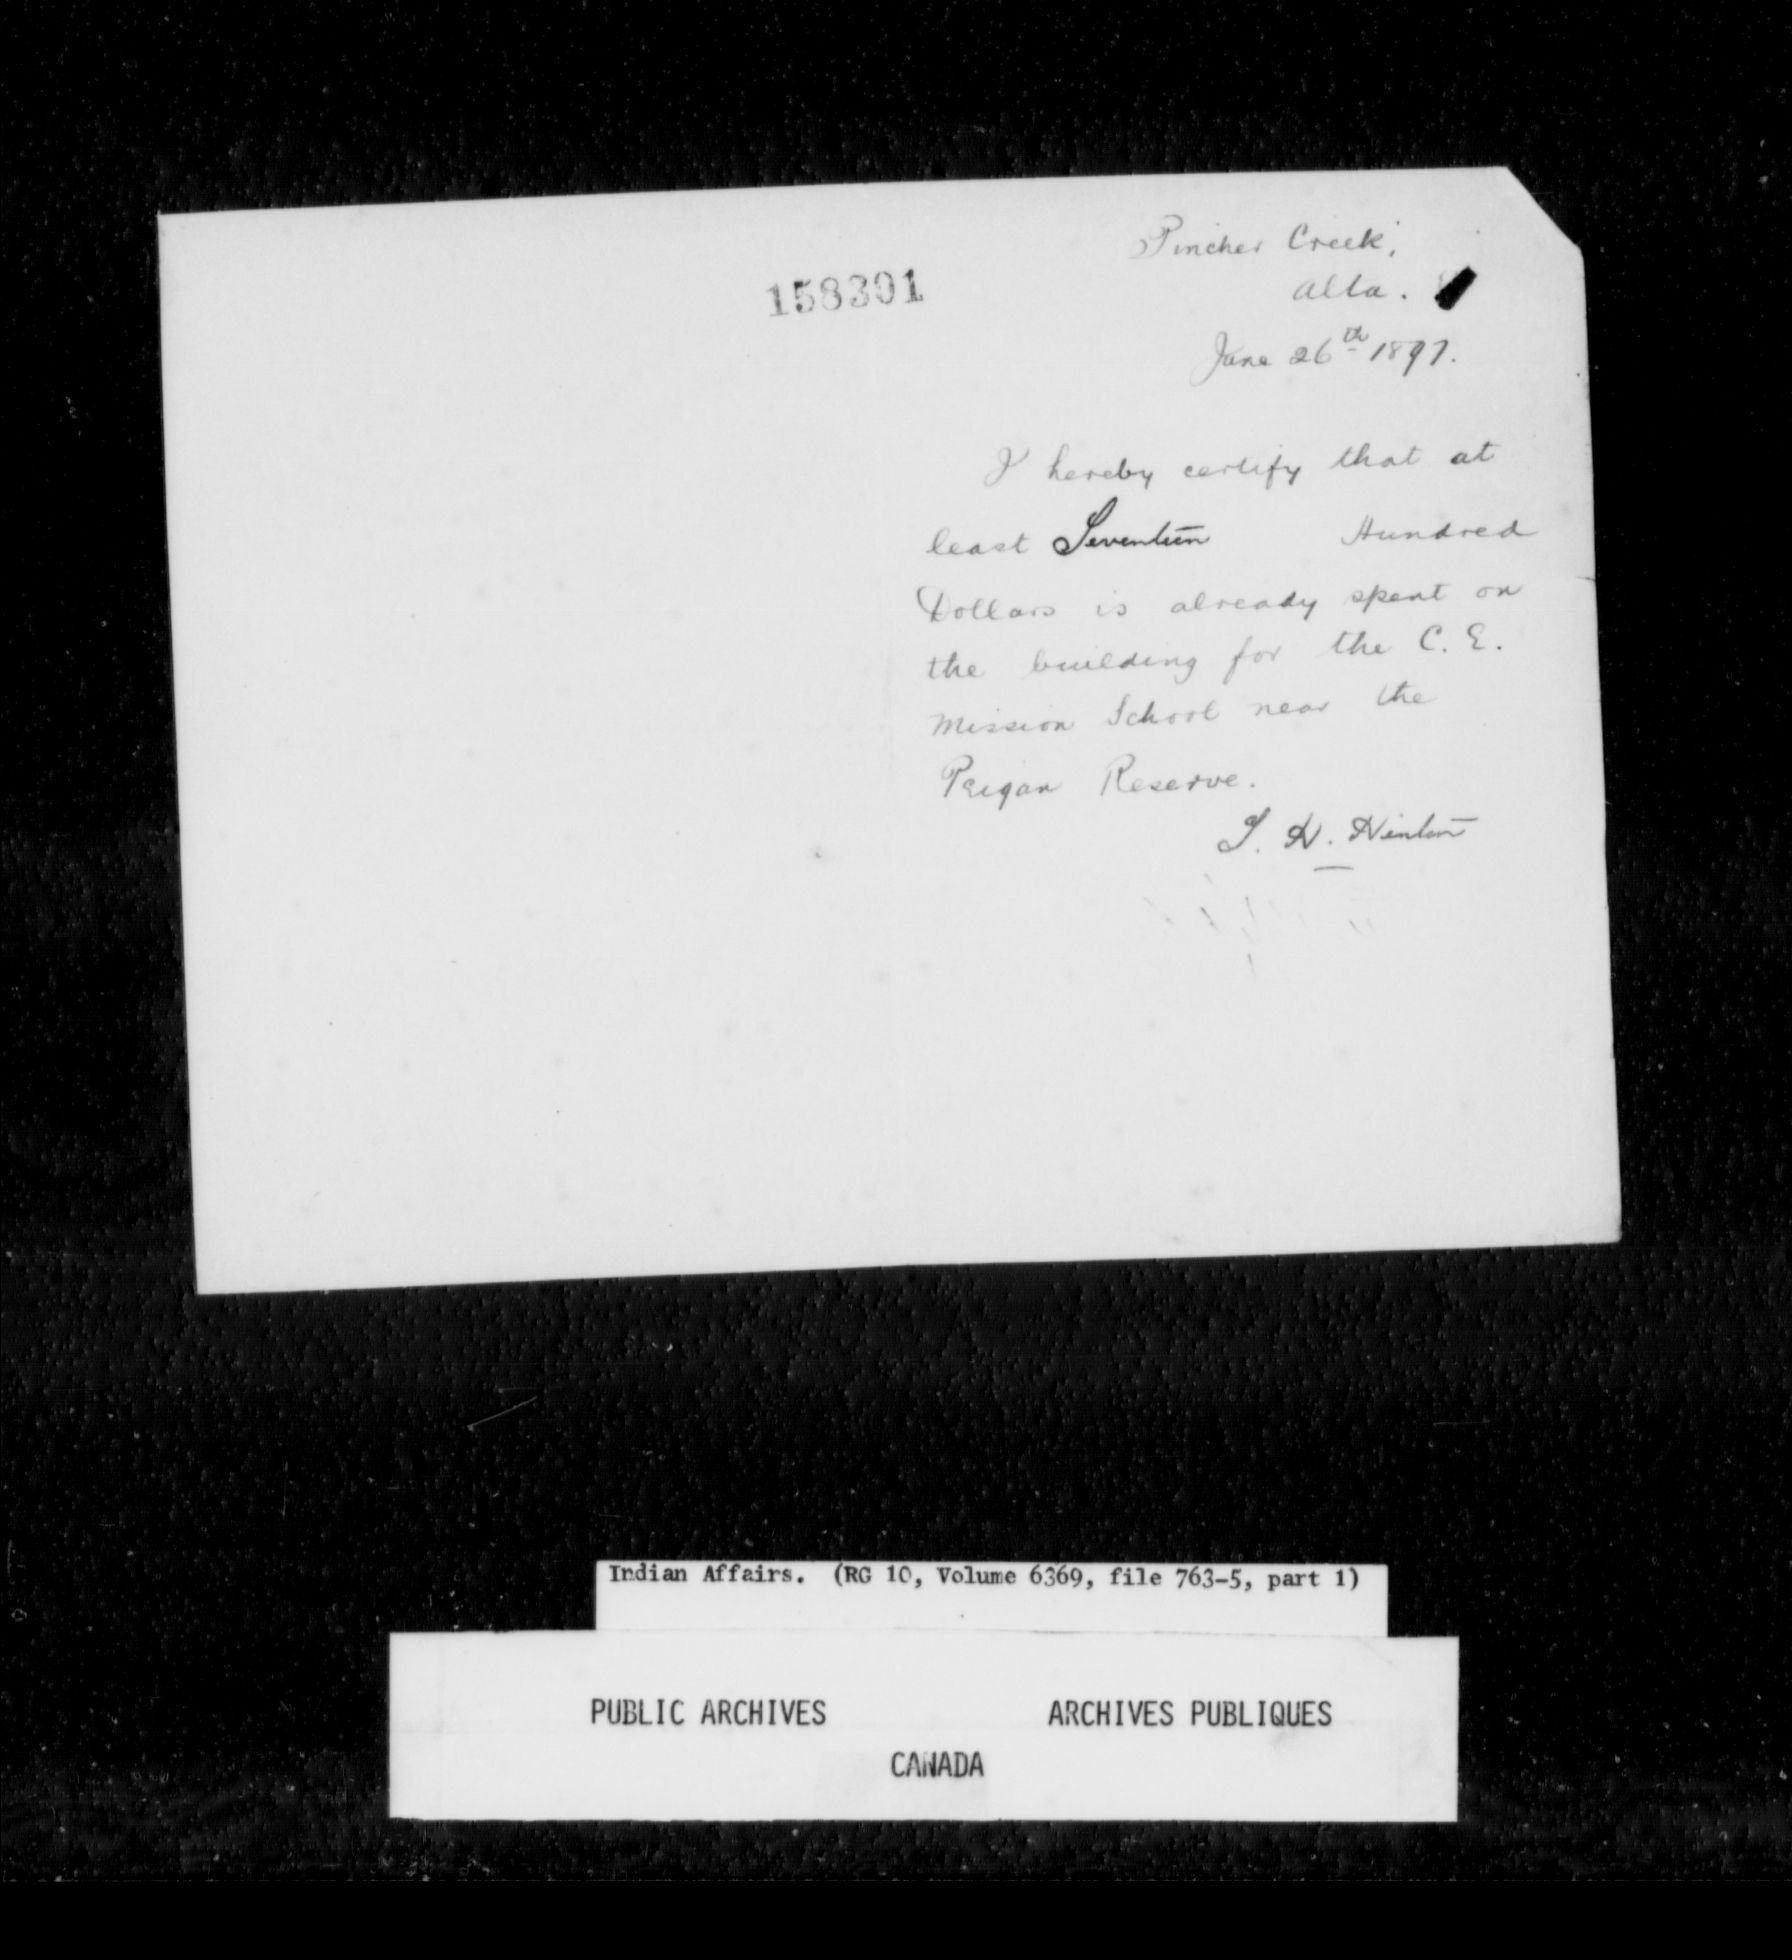 158301
Pincher Creek,
Alta.
June 26th 1897.
I hereby certify that at
least Seventeen Hundred
Dollars is already spent on
the building for the C. E.
Mission School near the
Peigan Reserve.
H. Hinton
Indian Affairs. (RG 10, Volume 6369, file 763-5, part 1)
PUBLIC ARCHIVES ARCHIVES PUBLIQUES
CANADA